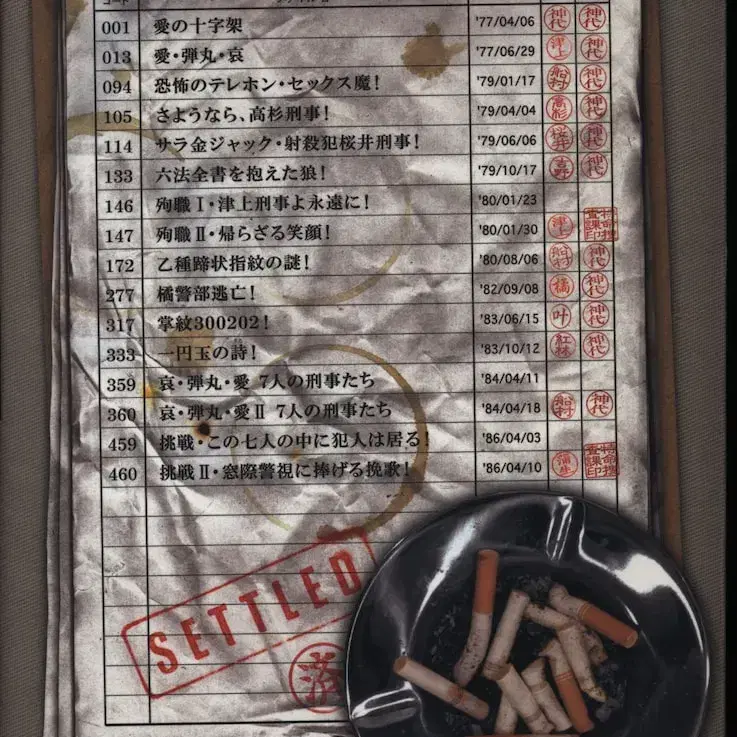 001 愛の十字架 '77/04/06 神代
013 愛・弾丸・哀 '77/06/29 津上 神代
094 恐怖のテレホン・セックス魔! '79/01/17 船村 神代
105 さようなら、高杉刑事! '79/04/04 高杉 神代
114 サラ金ジャック・射殺犯桜井刑事! '79/06/06 桜井 神代
133 六法全書を抱えた狼! '79/10/17 吉野 神代
146 殉職Ⅰ・津上刑事よ永遠に! '80/01/23
147 殉職Ⅱ・帰らざる笑顔! '80/01/30 津上 特命捜査課印
172 乙種蹄状指紋の謎! '80/08/06 船村 神代
277 橘警部逃亡! '82/09/08 橘 神代
317 掌紋300202! '83/06/15 叶 神代
333 一円玉の詩! '83/10/12 紅林 神代
359 哀・弾丸・愛 7人の刑事たち '84/04/11
360 哀・弾丸・愛Ⅱ 7人の刑事たち '84/04/18 船村 神代
459 挑戦・この七人の中に犯人は居る! '86/04/03
460 挑戦Ⅱ・窓際警視に捧げる挽歌! '86/04/10 特命捜査課印
SETTLED
済